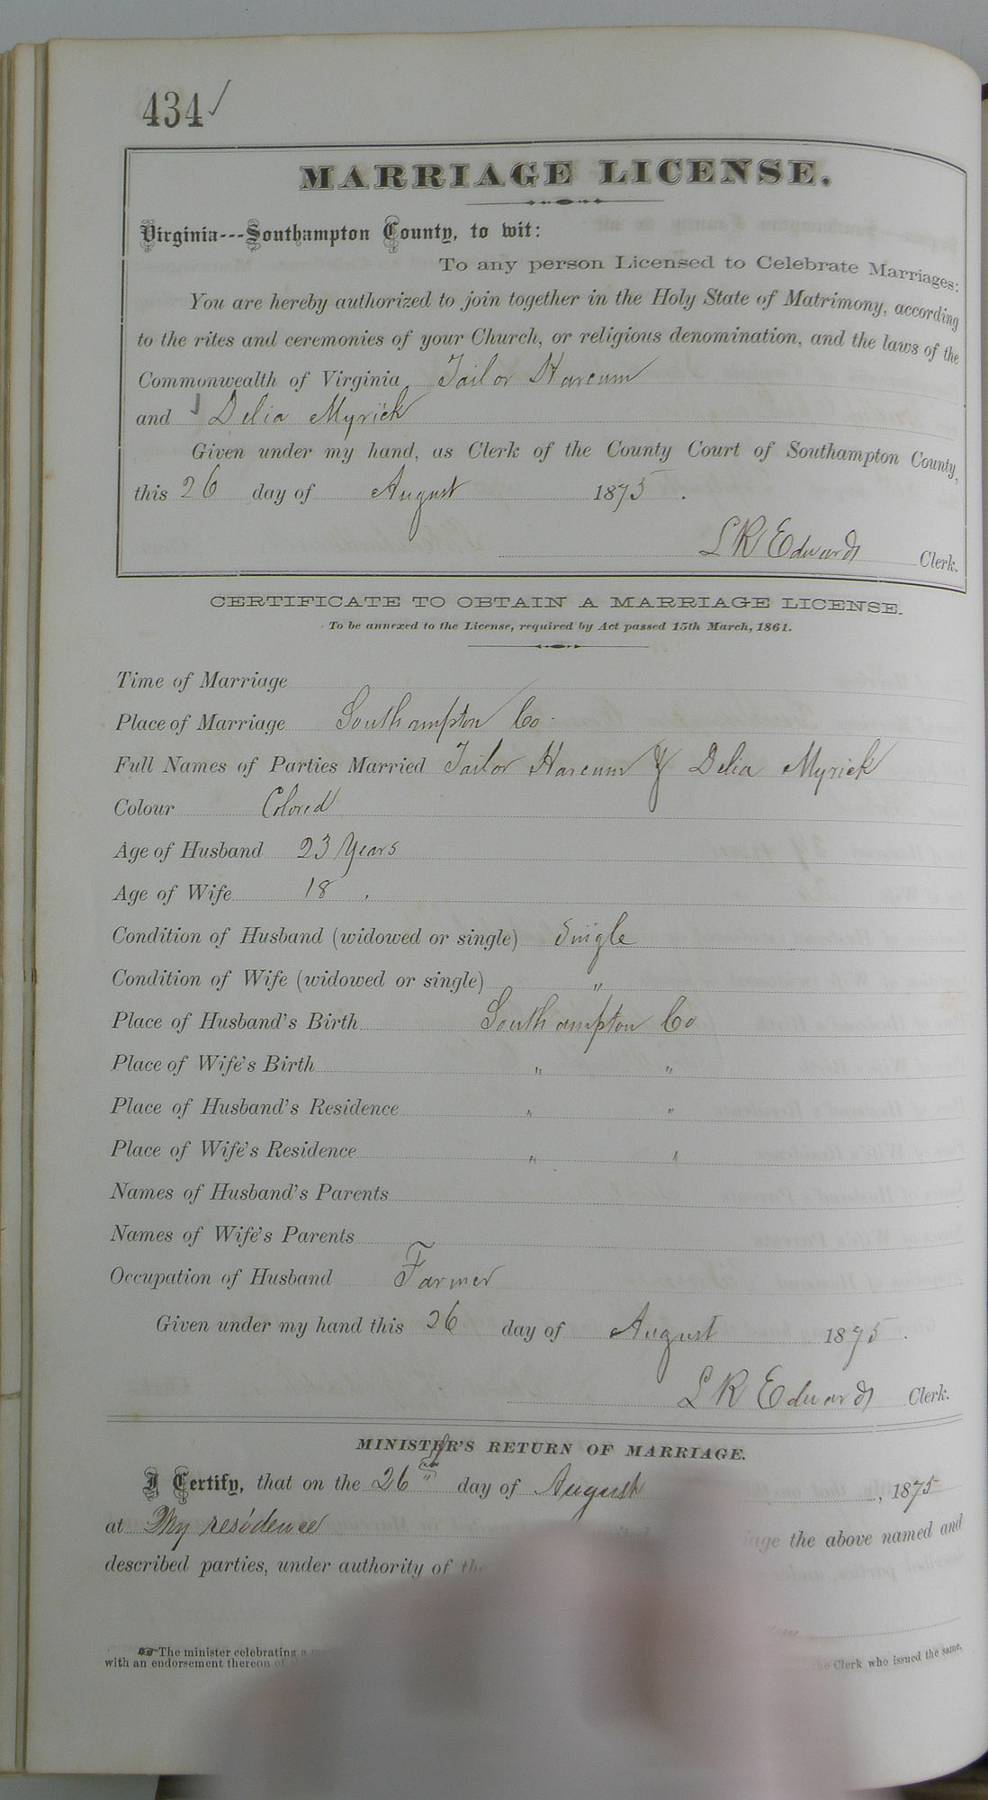 434 ✓
MARRIAGE LICENSE.
Virginia---Southampton County, to wit:
To any person Licensed to Celebrate Marriages:
You are hereby authorized to join together in the Holy State of Matrimony, according
to the rites and ceremonies of your Church, or religious denomination, and the laws of the
Commonwealth of Virginia Tailor Harcum
and Delia Myrick
Given under my hand, as Clerk of the County Court of Southampton County,
this 26 day of August 1875.
L R Edwards Clerk.
CERTIFICATE TO OBTAIN A MARRIAGE LICENSE.
To be annexed to the License, required by Act passed 15th March, 1861.
Time of Marriage
Place of Marriage Southampton Co.
Full Names of Parties Married Tailor Harcum & Delia Myrick
Colour Colored
Age of Husband 23 Years
Age of Wife 18 .
Condition of Husband (widowed or single) Single
Condition of Wife (widowed or single) "
Place of Husband's Birth Southampton Co
Place of Wife's Birth " "
Place of Husband's Residence " "
Place of Wife's Residence " "
Names of Husband's Parents
Names of Wife's Parents
Occupation of Husband Farmer
Given under my hand this 26 day of August 1875.
L R Edwards Clerk.
MINISTER'S RETURN OF MARRIAGE.
I Certify, that on the 26 day of August, 1875
at My residence the above named and
described parties, under authority of the
The minister celebrating a
with an endorsement thereon of the Clerk who issued the same.